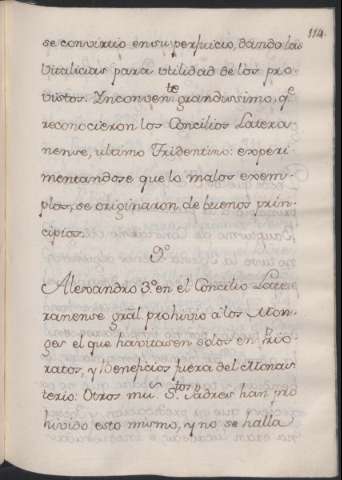 114
se convirtio en su perjuicio, dando las
Vitalicias para utilidad de los pro-
vistos. Ynconven.te grandissimo, q.e
reconocieron los Concilios Latera-
nense, ultimo Tridentino: experi-
mentandose que lo malos exem-
plos, se originaron de buenos prin-
cipios.
9.º
Alexandro 3.º en el Concilio Late-
ranense gral. prohivio a los Mon-
ges el que havitasen solos en Prio-
ratos, y Beneficios fuera del Monas-
terio: Otros mu.s S.tos Padres han pro
hivido esto mismo, y no se halla